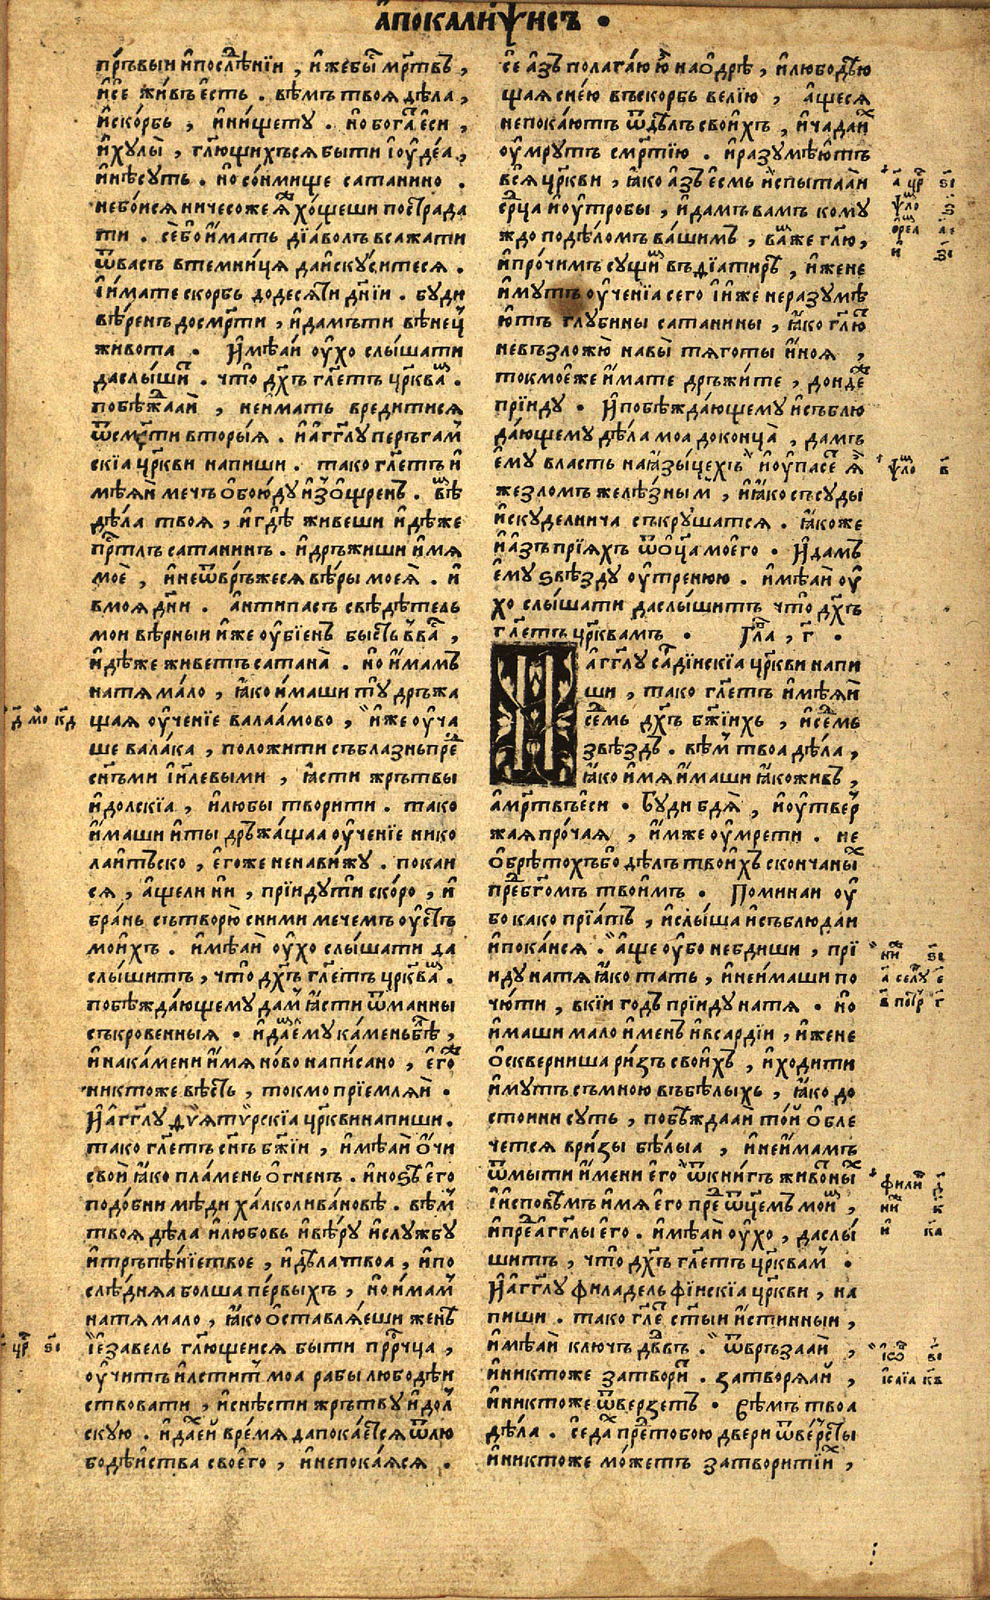 а҆покали́ѱисъ ·
пръ́выи и҆послѣ́днїи , и҆жебы́ мр҃твъ ,
и҆се́ жи́въ е҆сть . вѣ́мъ твоя дѣ́ла ,
и҆ско́рбь , и҆нищету̀ . но богатъ е҆си ,
и҆ху́лы , гл҃ющихъся бы́ти і҆оуде́а ,
и҆нѣсу́ть . но со́нмище сатанино .
небо́ися ничесоже я҆же хо́щеши пострада
ти . се́бо и҆мать дїа́волъ всажати
ѿвасъ втемни́ця даи҆ску́ситеся .
и҆ и҆мате скорбь додесяти дн҃їи . бу́ди
вѣ́ренъ досмр҃ти , и҆дамъти вѣне́ц
живота̀ . И҆мѣ́аи оу҆́хо слы́шати
даслы́шит . что̀ дх҃ъ гл҃етъ цр҃квамъ .
побѣжа́аи , неи҆мать вреди́тися
ѿсмр҃ти вторы́я . и҆ а҆́гг҃лу пе́ръгам
скїа цр҃кви напиши . тако гл҃етъ и҆
мѣ́яи мечь о҆бою́ду и҆зо҆стренъ . вѣ
дѣ́ла твоя , и҆гдѣ̀ живеши и҆дѣ́же
пр҃тлъ сатанинъ . и҆дръжиши и҆мя
моѐ , и҆неѿвръ́жеся вѣ́ры моея̀ . и҆
вмоя дн҃и . а҆нтипасъ свѣдѣ́тель
мои вѣ́рныи и҆же оу҆бїе́нъ бы́сть ввасъ ,
и҆дѣ́же живе́тъ сатана̀ . но и҆мамъ
натя ма́ло , я҆ко имаши ту̀ дръжа
щая оу҆че́нїе валаа́мово , и҆же оу҆ча
ше вала́ка , положи́ти съблазнъпред
сн҃ъми і҆и҃левыми , я҆сти жръ́твы
и҆долскїа , и҆любы твори́ти . тако
и҆маши и҆ты дръжа́щаа оу҆ченїе нико
лаи́тьско , е҆гоже ненави́жу . покаи
ся , а҆щели ни , прїиду́ти ско́ро , и҆
бра́нь сътворю̀ сними мечемъ оу҆стъ
мои҆хъ . и҆мѣ́аи оу҆́хо слы́шати да
слы́шитъ , что̀ дх҃ъ гл҃етъ цр҃квамъ .
побѣжда́ющему дам я҆сти ѿманны
съкрове́нныя . и҆дам е҆му ка́меньбѣлъ ,
и҆нака́мени и҆́мя но́во напи́сано , е҆гоже
никто́же вѣ́сть , токмо прїемля́и .
И҆а҆́гг҃лу дѵ҆яти́рскїа цр҃квинапиши .
тако гл҃етъ сн҃ъ бж҃їи , и҆мѣ́аи о҆́чи
свои я҆ко пла́мень о҆гненъ . и҆но́ѕѣ е҆го
подо́бни мѣ́ди ха́лколива́новѣ . вѣ́м
твоя дѣ́ла и҆любо́вь и҆вѣ́ру и҆слу́жбу
и҆тръпѣ́нїетвое , и҆дѣлатвоа , и҆по
слѣ́дняа болша пе́рвыхъ , но и҆мам
натя мало , я҆ко о҆ставля́еши женѣ̀
і҆езавель гл҃ющеися бы́ти прⷪ҇рчца ,
оу҆чи́тъ и҆льсти́т моа рабы̀ любодѣи
ствовати , и҆снѣ́сти жръ́тву и҆дол
скую . и҆дахеи вре́мя дапока́ется ѿлю
бодѣ́йства своего̀ , и҆непока́яся .
се́ а҆зъ полага́ю ю҆ нао҆дрѣ̀ , и҆любодѣю
щая сне́ю въско́рбь велїю , а҆щеся
непока́ютъ ѿдѣ́лъ свои́хъ , и҆ча́даи҆х
оу҆мрутъ смр҃тїю . и҆разумѣ́ютъ
вся цр҃кви , я҆ко а҆зъ е҆́смь и҆спыта́аи
ср҃ца и҆оу҆тро́бы , и҆дамъ вамъ кому
ждо подѣ́ломъ ва́шимъ , ва́мже гл҃ю ,
и҆про́чимъ су́щим въдїатирѣ , и҆жене
и҆мутъ оу҆че́нїа сего и҆ и҆же неразумѣ
ютъ глубины̀ сатанины , я҆ко гл҃ю
невъзложю̀ навы̀ тяготы и҆ноя ,
токмоеже и҆мате дръжи́те , дондеже
прїиду . И҆побѣжда́ющему и҆съблю
да́ющему дѣ́ла моа доконца̀ , дамъ
е҆му̀ власть наязы́цехъ и҆оу҆пасе́т я҆
жезломъ желѣ́зным , и҆я҆ко съсу́ды
и҆скуделнича съкруша́тся . я҆коже
и҆а҆зъ прїяхъ ѿо҆ц҃а моего̀ . И҆дамъ
е҆му ѕвѣзду̀ оу҆треннюю . и҆мѣ́аи оу҆
хо слы́шати даслы́шитъ что̀ дх҃ъ
гл҃етъ цр҃квамъ . Гла҃ , г҃ .
И а҆́гг҃лу са́рдїискїа цр҃кви напи
ши , тако гл҃етъ и҆мѣ́яи
се́дмь дх҃ъ бж҃їихъ , и҆се́дмь
звѣ́здъ . вѣ́м твоа дѣ́ла ,
я҆ко и҆мя и҆маши я҆коживъ ,
а҆мр҃твъеси . Бу́ди бдя̀ , и҆оу҆твер
жая про́чая , и҆мже оу҆мре́ти . не
о҆брѣто́хъбо дѣ́лъ твои́хъ скончаны́х
пред бг҃омъ твоимъ . Помина́и оу҆
бо како прїатъ , и҆слы́ша и҆съблюда́и
и҆пока́ися . а҆ще оу҆бо небди́ши , прї
иду натя я҆ко тать , и҆неи҆маши по
чю́ти , вкїи годъ прїиду натя . но
и҆маши мало и҆менъ и҆всардїи , и҆жене
о҆скверниша ри́зъ свои́хъ , и҆ходити
и҆мутъ съмно́ю въбѣ́лыхъ , я҆ко до
сто́ини суть , побѣждааи то́и о҆бле
че́тся вризы бѣ́лыа , и҆неи́мамъ
ѿмы́ти и҆мени е҆го̀ ѿкни́гъ живо́тных
и҆ и҆сповѣ́мъ и҆мя его пред ѿц҃емъ мои҆м ,
и҆преда҆гг҃лы его . и҆мѣ́аи оу҆́хо , даслы́
шитъ , что̀ дх҃ъ гл҃етъ цр҃квам .
И҆а҆́гг҃лу филаде́льфїискїа цр҃кви , на
пиши . тако гл҃етъ ст҃ы́и и҆́стинныи ,
и҆мѣ́аи ключъ дв҃въ . ѿвръза́аи ,
и҆никто́же затвори́т . затворя́яи ,
и҆никто́же ѿве́рзетъ . Вѣмъ твоа
дѣ́ла . се́дахъ пред тобою двери ѿве́рсты
и҆никто́же мо́жетъ затвори́тии҆х ,